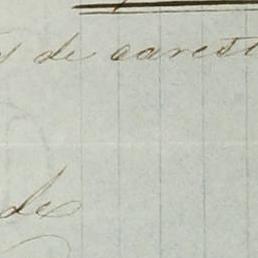 de carest
de